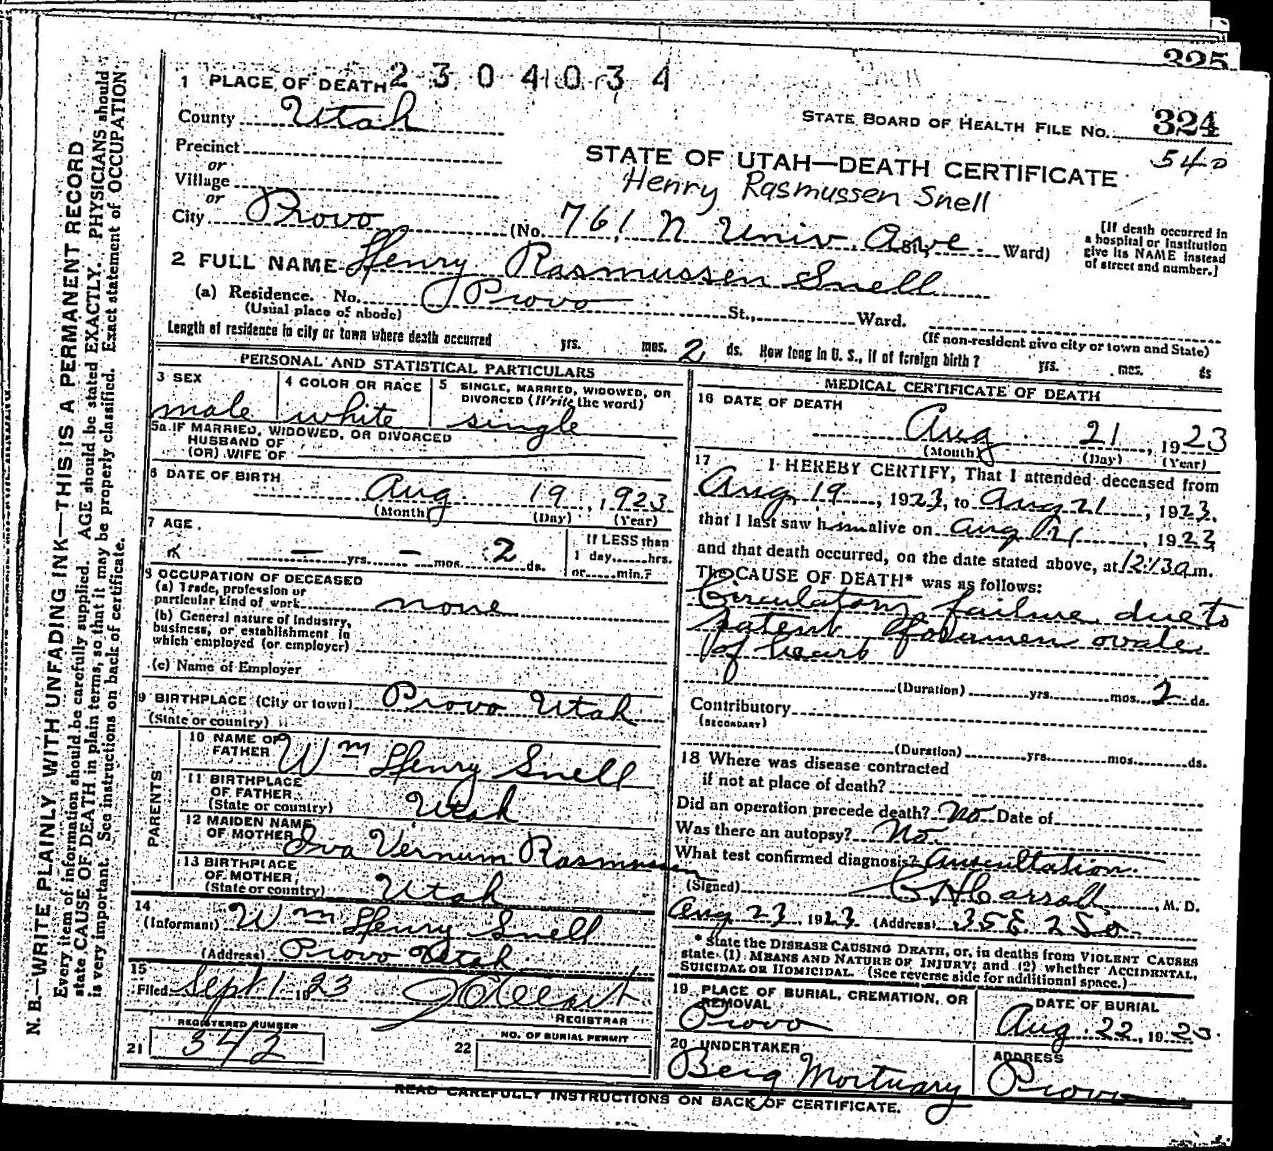 325
2304034
1 PLACE OF DEATH
STATE BOARD OF HEALTH FILE NO. 324
540
County Utah
Precinct
or
Village
or
City Provo
STATE OF UTAH—DEATH CERTIFICATE
Henry Rasmussen Snell
(No. 761 N Univ Ave St., Ward)
[If death occurred in
a hospital or institution
give its NAME instead
of street and number.]
2 FULL NAME Henry Rasmussen Snell
(a) Residence. No. Provo St., Ward.
(Usual place of abode)
(If non-resident give city or town and State)
Length of residence in city or town where death occurred yrs. mos. 2 ds. How long in U. S., if of foreign birth? yrs. mos. ds
PERSONAL AND STATISTICAL PARTICULARS
3 SEX
male
4 COLOR OR RACE
white
5 SINGLE, MARRIED, WIDOWED, OR
DIVORCED (Write the word)
single
5a IF MARRIED, WIDOWED, OR DIVORCED
HUSBAND OF
(OR) WIFE OF
6 DATE OF BIRTH
Aug. 19, 1923
(Month) (Day) (Year)
7 AGE
— yrs. — mos. 2 ds.
If LESS than
1 day,......hrs.
or......min.?
8 OCCUPATION OF DECEASED
(a) Trade, profession or
particular kind of work none
(b) General nature of Industry,
business, or establishment in
which employed (or employer)
(c) Name of Employer
9 BIRTHPLACE (City or town) Provo Utah
(State or country)
PARENTS
10 NAME OF
FATHER Wm Henry Snell
11 BIRTHPLACE
OF FATHER
(State or country) Utah
12 MAIDEN NAME
OF MOTHER Iva Vernum Rasmussen
13 BIRTHPLACE
OF MOTHER
(State or country) Utah
14
(Informant) Wm Henry Snell
(Address) Provo Utah
15
Filed Sept 1 1923
REGISTRAR
REGISTERED NUMBER
21 342
NO. OF BURIAL PERMIT
22
MEDICAL CERTIFICATE OF DEATH
16 DATE OF DEATH
Aug 21, 1923
(Month) (Day) (Year)
17 I HEREBY CERTIFY, That I attended deceased from
Aug 19, 1923, to Aug 21, 1923.
that I last saw him alive on Aug 21, 1923
and that death occurred, on the date stated above, at 12:13 a m.
The CAUSE OF DEATH* was as follows:
Circulatory failure due to
patent foramen ovale
of heart
(Duration) yrs. mos. 2 ds.
Contributory
(SECONDARY)
(Duration) yrs. mos. ds.
18 Where was disease contracted
if not at place of death?
Did an operation precede death? No Date of
Was there an autopsy? No.
What test confirmed diagnosis? Auscultation
(Signed) C H Carroll, M. D.
Aug 23, 1923 (Address) 35 E. 2 So.
* State the DISEASE CAUSING DEATH, or, in deaths from VIOLENT CAUSES
state (1) MEANS AND NATURE OF INJURY; and (2) whether ACCIDENTAL,
SUICIDAL OR HOMICIDAL. (See reverse side for additional space.)
19 PLACE OF BURIAL, CREMATION, OR
REMOVAL
Provo
DATE OF BURIAL
Aug. 22, 1923.
20 UNDERTAKER
Berg Mortuary
ADDRESS
Provo
READ CAREFULLY INSTRUCTIONS ON BACK OF CERTIFICATE.
N. B.—WRITE PLAINLY WITH UNFADING INK—THIS IS A PERMANENT RECORD
Every item of information should be carefully supplied. AGE should be stated EXACTLY. PHYSICIANS should
state CAUSE OF DEATH in plain terms, so that it may be properly classified. Exact statement of OCCUPATION
is very important. See instructions on back of certificate.